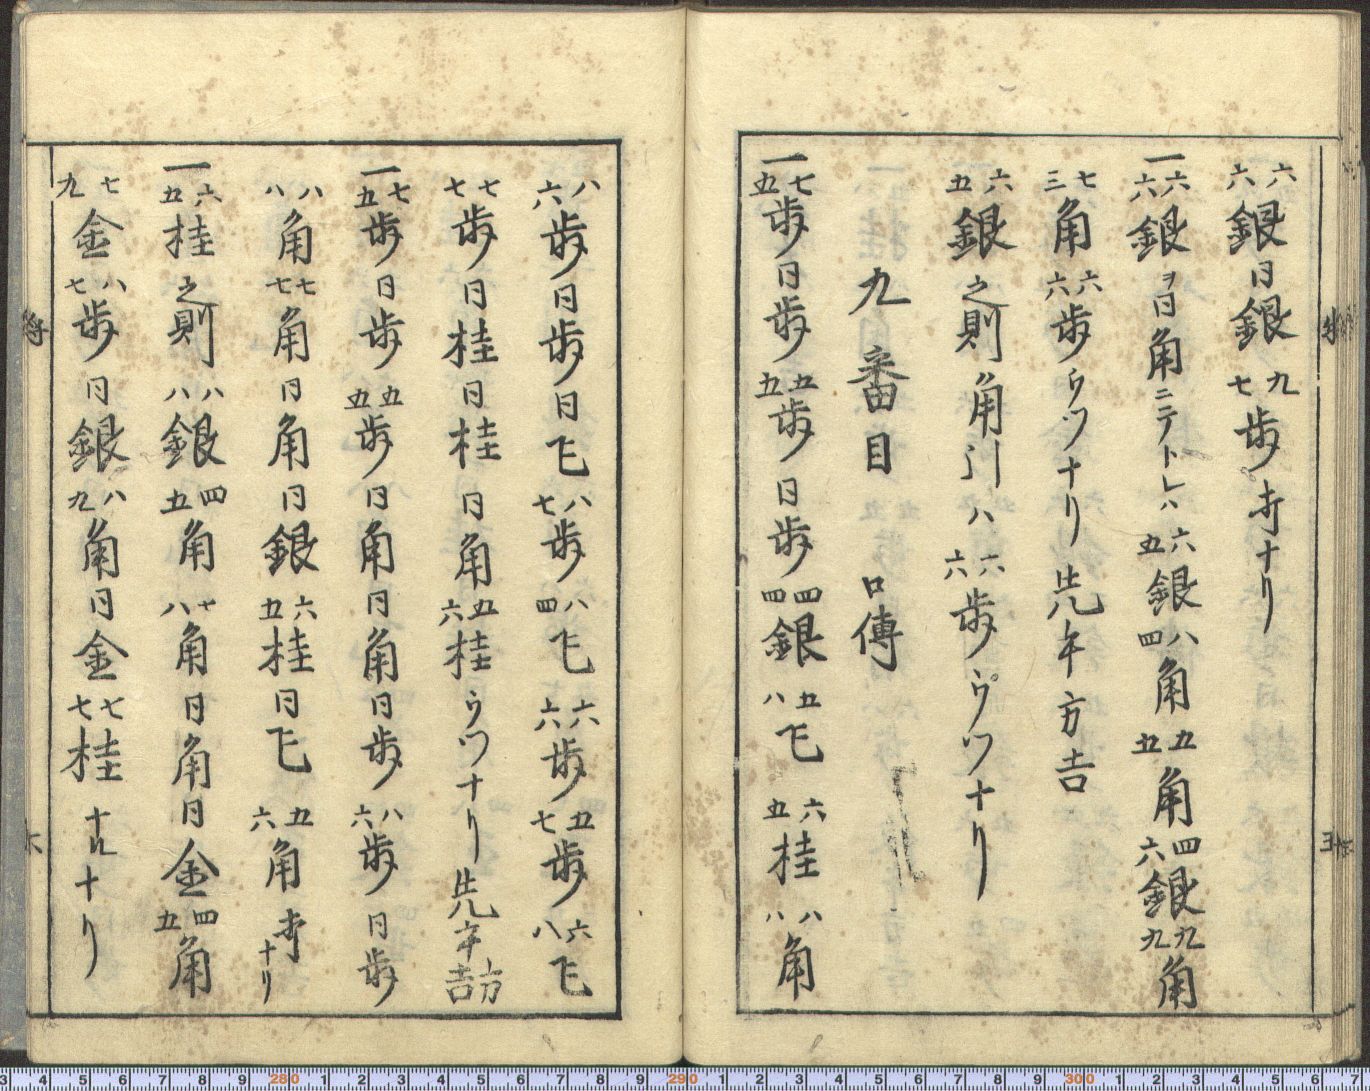 六六銀同銀九七歩ナリ
一六六銀ヲ同角ニテトレハ六五銀八四角五五角四六銀九九角
七三角六六歩ウツナリ先年方吉
六五銀之則角引ハ六六歩ウツナリ
九番目 口傳
一七五歩同歩五五歩同歩四四銀五八飛六五桂八八角
八六歩同歩同飛八七歩八四飛六六歩五七歩六八飛
七七歩同桂同桂同角五六桂ウツナリ先年方吉
一七五歩同歩五五歩同角同角同歩八六歩同歩
八八角七七角同角同銀六五桂同飛五六角ナリ
一六五桂之則八八銀四五角七八角同角同金四五角
七九金八七歩同銀八九角同金七七桂ナルナリ
3 4 5 6 7 8 9 280 1 2 3 4 5 6 7 8 9 290 1 2 3 4 5 6 7 8 9 300 1 2 3 4 5 6 7